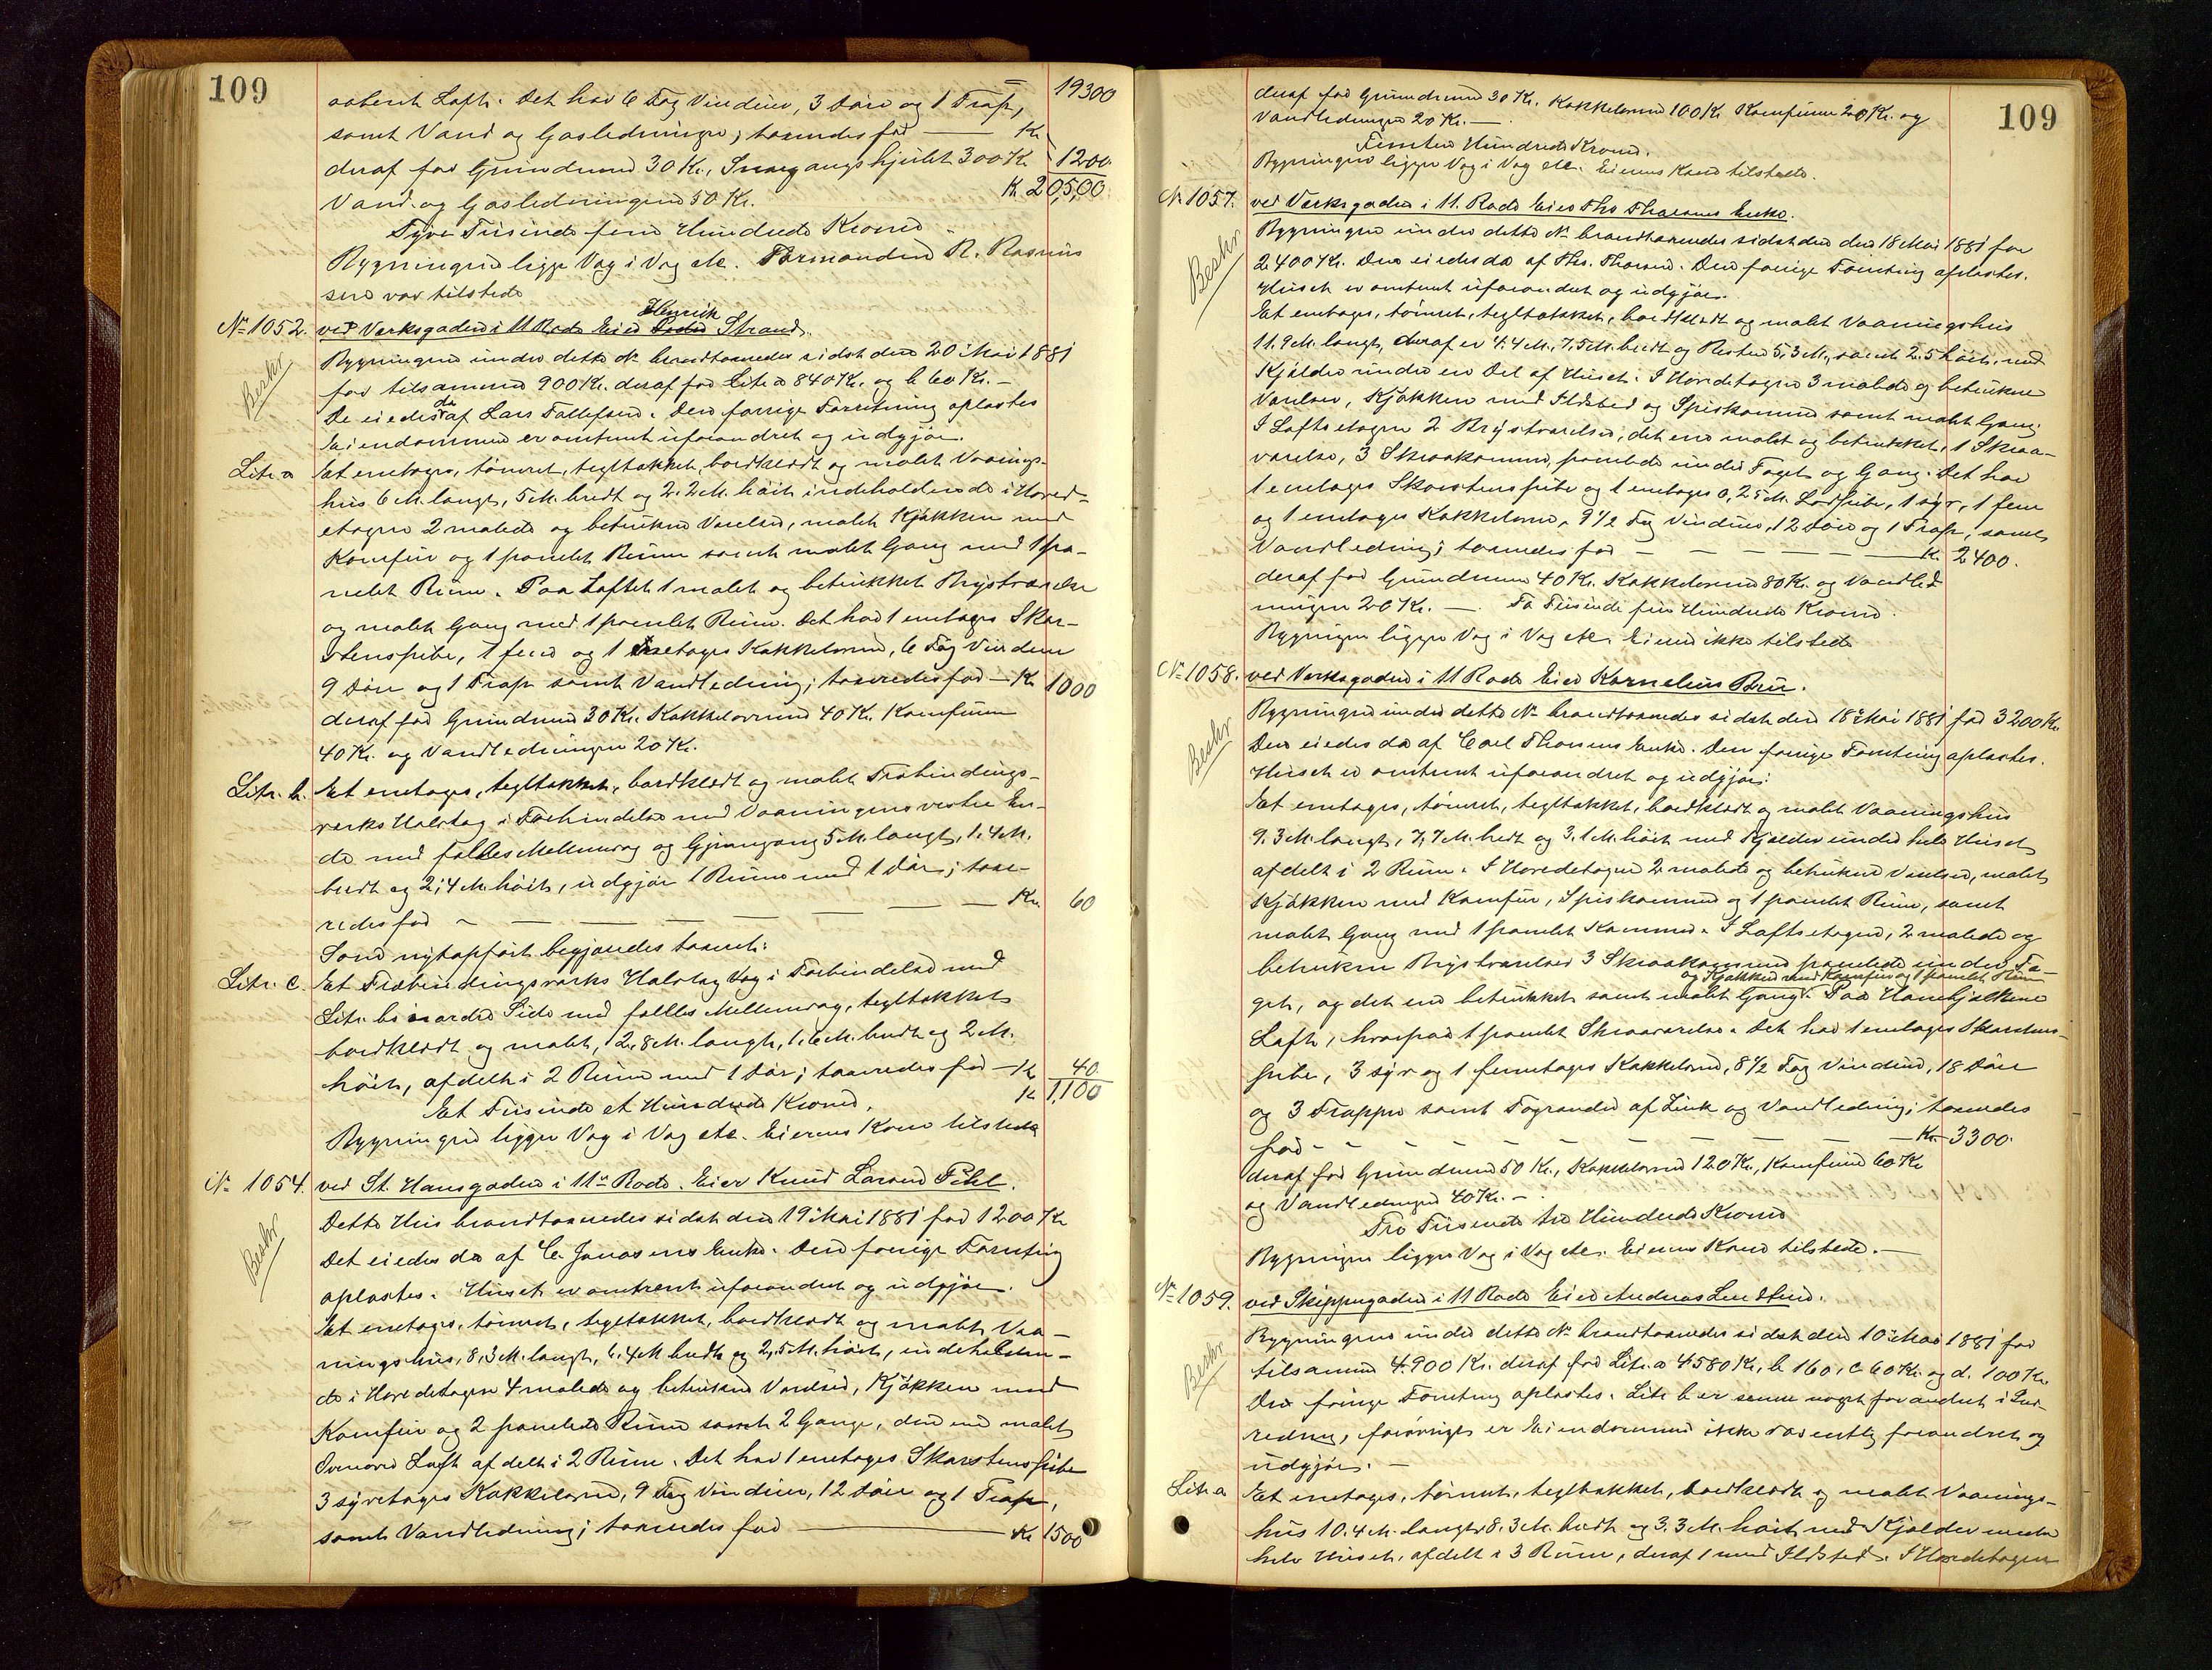 109
19300
aabent Loft. Det har 6 Fag Vinduer, 3 Døre og 1 Trap,
samt Vand og Gasledninger; taxeredes for — Kr. 1200.
deraf for Grundmuren 30 Kr., Svinggangshjulet 300 Kr.
Vand- og Gasledningerne 50 Kr. Kr. 20,500
Tyve Tusinde fem Hundrede Kroner
Bygningerne ligge Væg i Væg etc. Formanden R. Rasmus
sen var tilstede
No 1052. ved Værksgaden i 11 Rode Eier Henrik Strand.
Beskr
Bygningerne under dette No brandtaxeredes sidst den 20 Mai 1881
for tilsammen 900 Kr. deraf for Litr. a 840 Kr. og b 60 Kr. —
De eiedes da af Lars Tallefsen. Den forrige Forretning oplæstes
Eiendommen er omtrent uforandret og udgjør.
Litr. a Et enetages, tømret, tegltækket, bordklædt og malet Vaanings-
hus 6 M. langt, 5 M. bredt og 2.2 M. høit indeholdende i Hoved-
etagen 2 malede og betrukne Værelser, malet Kjøkken med
Komfur og 1 panelet Rum samt malet Gang med 1 pa-
nelet Rum. Paa Loftet 1 malet og betrukket Brystværelse
og malet Gang med 1 panelet Rum. Det har 1 enetages Skor-
stenspibe, 1 fem og 1 enetages Kakkelovne, 6 Fag Vinduer
9 Døre og 1 Trap samt Vandledning; taxeredes for — Kr. 1000
deraf for Grundmuren 30 Kr. Kakkelovnene 40 Kr. Komfuren
40 Kr. og Vandledningen 20 Kr.
Litr. b. Et enetages, tegltækket, bordklædt og malet Træbindings-
værks Halvtag i Forbindelse med Vaaningens vestre En-
de med fælles Mellemvæg og Gjennemgang 5 M. langt, 1.4 M.
bredt og 2,4 M. høit, udgjør 1 Rum med 1 Dør; taxe-
redes for — — — — — — Kr. 60
Som nyopført begjæredes taxeret:
Litr. c. Et Træbindingsværks Halvtag Væg i Forbindelse med
Litr. b's nordre Side med fælles Mellemvæg, tegltækket
bordklædt og malet, 2.8 M. langt, 1.6 M. bredt og 2 M.
høit, afdelt i 2 Rum med 1 Dør; taxeredes for — Kr. 40
Et Tusinde et Hundrede Kroner. Kr. 1,100
Bygningerne ligger Væg i Væg etc. Eierens Kone tilstede
No 1054. ved St. Hansgaden i 11te Rode. Eier Knud Larsen Pihl.
Beskr
Dette Hus brandtaxeredes sidst den 19 Mai 1881 for 1200 Kr
Det eiedes da af C. Jonasens Enke. Den forrige Forretning
oplæstes. Huset er omtrent uforandret og udgjør.
Et enetages, tømret, tegltækket, bordklædt og malet Vaa-
ningshus, 8,3 M. langt, 6.4 M bredt og 2,5 M. høit, indeholden-
de i Hovedetagen 4 malede og betrukne Værelser, Kjøkken med
Komfur og 2 panelede Rum samt 2 Gange, den ene malet
Ovenover Loft afdelt i 2 Rum. Det har 1 enetages Skorstenspibe
3 syvetages Kakkelovne, 9 Fag Vinduer, 12 Døre og 1 Trap,
samt Vandledning; taxeredes for — Kr. 1500
109
deraf for Grundmuren 30 Kr. Kakkelovnene 100 Kr. Komfuren 20 Kr. og
Vandledningen 20 Kr. —
Femten Hundrede Kroner.
Bygningen ligger Væg i Væg etc. Eierens Kone tilstede.
No 1057. ved Værksgaden i 11. Rode Eier Ths Thorsens Enke.
Beskr
Bygningen under dette No brandtaxeredes sidst den 18 Mai 1881 for
2400 Kr. Den eiedes da af Ths. Thorsen. Den forrige Forretning oplæstes.
Huset er omtrent uforandret og udgjør.
Et enetages, tømret, tegltækket, bordklædt og malet Vaaningshus
11.9 M. langt, deraf er 4.4 M., 7,5 M. bredt og Resten 5,3 M., samt 2.5 høit, med
Kjælder under en Del af Huset. I Hovedetagen 3 malede og betrukne
Værelser, Kjøkken med Ildsted og Spiskammer samt malet Gang.
I Loftsetagen 2 Brystværelser, det ene malet og betrukket, 1 Skraa-
værelse, 3 Skraakammer, panelede under Taget og Gang. Det har
1 enetages Skorstenspibe og 1 enetages 0,25 M. Lodpibe, 1 syv, 1 fem
og 1 enetages Kakkelovne, 9 1/2 Fag Vinduer, 12 Døre og 1 Trap, samt
Vandledning; taxeredes for — — — — — — Kr. 2400.
deraf for Grundmuren 40 Kr. Kakkelovnene 80 Kr. og Vandled
ningen 20 Kr. — To Tusinde fire Hundrede Kroner.
Bygningen ligger Væg i Væg etc. Eieren ikke tilstede
No 1058. ved Værksgaden i 11 Rode Eier Kornelius Bru.
Beskr
Bygningen under dette No brandtaxeredes sidst den 18 Mai 1881 for 3200 Kr.
Den eiedes da af Carl Thorsens Enke. Den forrige Forretning oplæstes.
Huset er omtrent uforandret og udgjør:
Et enetages, tømret, tegltækket, bordklædt og malet Vaaningshus
9.3 M. langt, 7,7 M. bredt og 3.1 M. høit med Kjælder under hele Huset
afdelt i 2 Rum. I Hovedetagen 2 malede og betrukne Værelser, malet
Kjøkken med Komfur, Spiskammer og 1 panelet Rum, samt
malet Gang med 1 panelet Kammer. I Loftsetagen, 2 malede og
betrukne Brystværelser 3 Skraakammer panelede under Ta-
og Kjøkken med Komfur og 1 panelet Rum
get, og det ene betrukket samt malet Gang. Paa Hanebjælkene
Loft, hvorpaa 1 panelet Skraaværelse. Det har 1 enetages Skorstens-
pibe, 3 syv og 1 femetages Kakkelovne, 8 1/2 Fag Vinduer, 18 Døre
og 3 Trapper samt Tagrender af Zink og Vandledning; taxeredes
for — — — — — — — — Kr. 3300.
deraf for Grundmuren 50 Kr., Kakkelovnene 120 Kr., Komfurene 60 Kr
og Vandledningen 40 Kr. —
Tre Tusinde tre Hundrede Kroner
Bygningen ligger Væg i Væg etc. Eierens Kone tilstede. —
No 1059. ved Skippergaden i 11 Rode Eier Andreas Lendsen.
Beskr
Bygningerne under dette No brandtaxeredes sidst den 10 Mai 1881 for
tilsammen 4.900 Kr. deraf for Litr. a 4580 Kr., b 160, c 60 Kr. og d. 100 Kr.
Den forrige Forretning oplæstes. Litr b er noget forandret i Ind-
redning, forøvrigt er Eiendommen ikke væsentlig forandret og
udgjør. —
Litr a Et enetages, tømret, tegltækket, bordklædt og malet Vaanings-
hus 10.4 M. langt, 8.3 M. bredt og 3.3 M. høit med Kjælder under
hele Huset, afdelt i 3 Rum, deraf 1 med Ildsted. I Hovedetagen